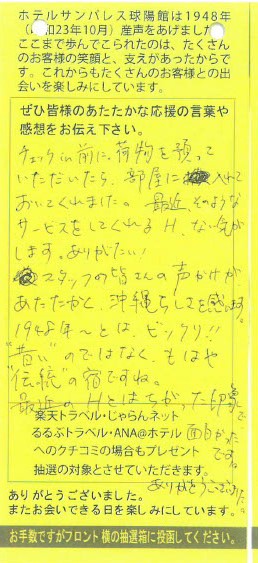 ホテルサンパレス球陽館は1948年
(昭和23年10月)産声をあげました
ここまで歩んでこられたのは、たくさん
のお客様の笑顔と、支えがあったからで
す。これからもたくさんのお客様との出
会いを楽しみにしています。
ぜひ皆様のあたたかな応援の言葉や
感想をお伝え下さい。
チェックin前に、荷物を預って
いただいたら、部屋に入れて
おいてくれました。最近、そのような
サービスをしてくれるH、ない気が
します。ありがたい!
スタッフの皆さんの声かけが
あたたかく、沖縄らしさを感じます。
1948年〜とは、ビックリ!!
"昔い"のではなく、もはや
"伝統"の宿ですね。
最近のHとはちがった印象で
面白かった
です。
ありがとうございました。
楽天トラベル・じゃらんネット
るるぶトラベル・ANA@ホテル
へのクチコミの場合もプレゼント
抽選の対象とさせていただきます。
ありがとうございました。
またお会いできる日を楽しみにしています。
お手数ですがフロント横の抽選箱に投函してください。